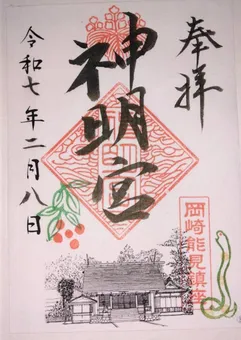 奉拝
神明宮
岡崎能見鎮座
令和七年二月八日